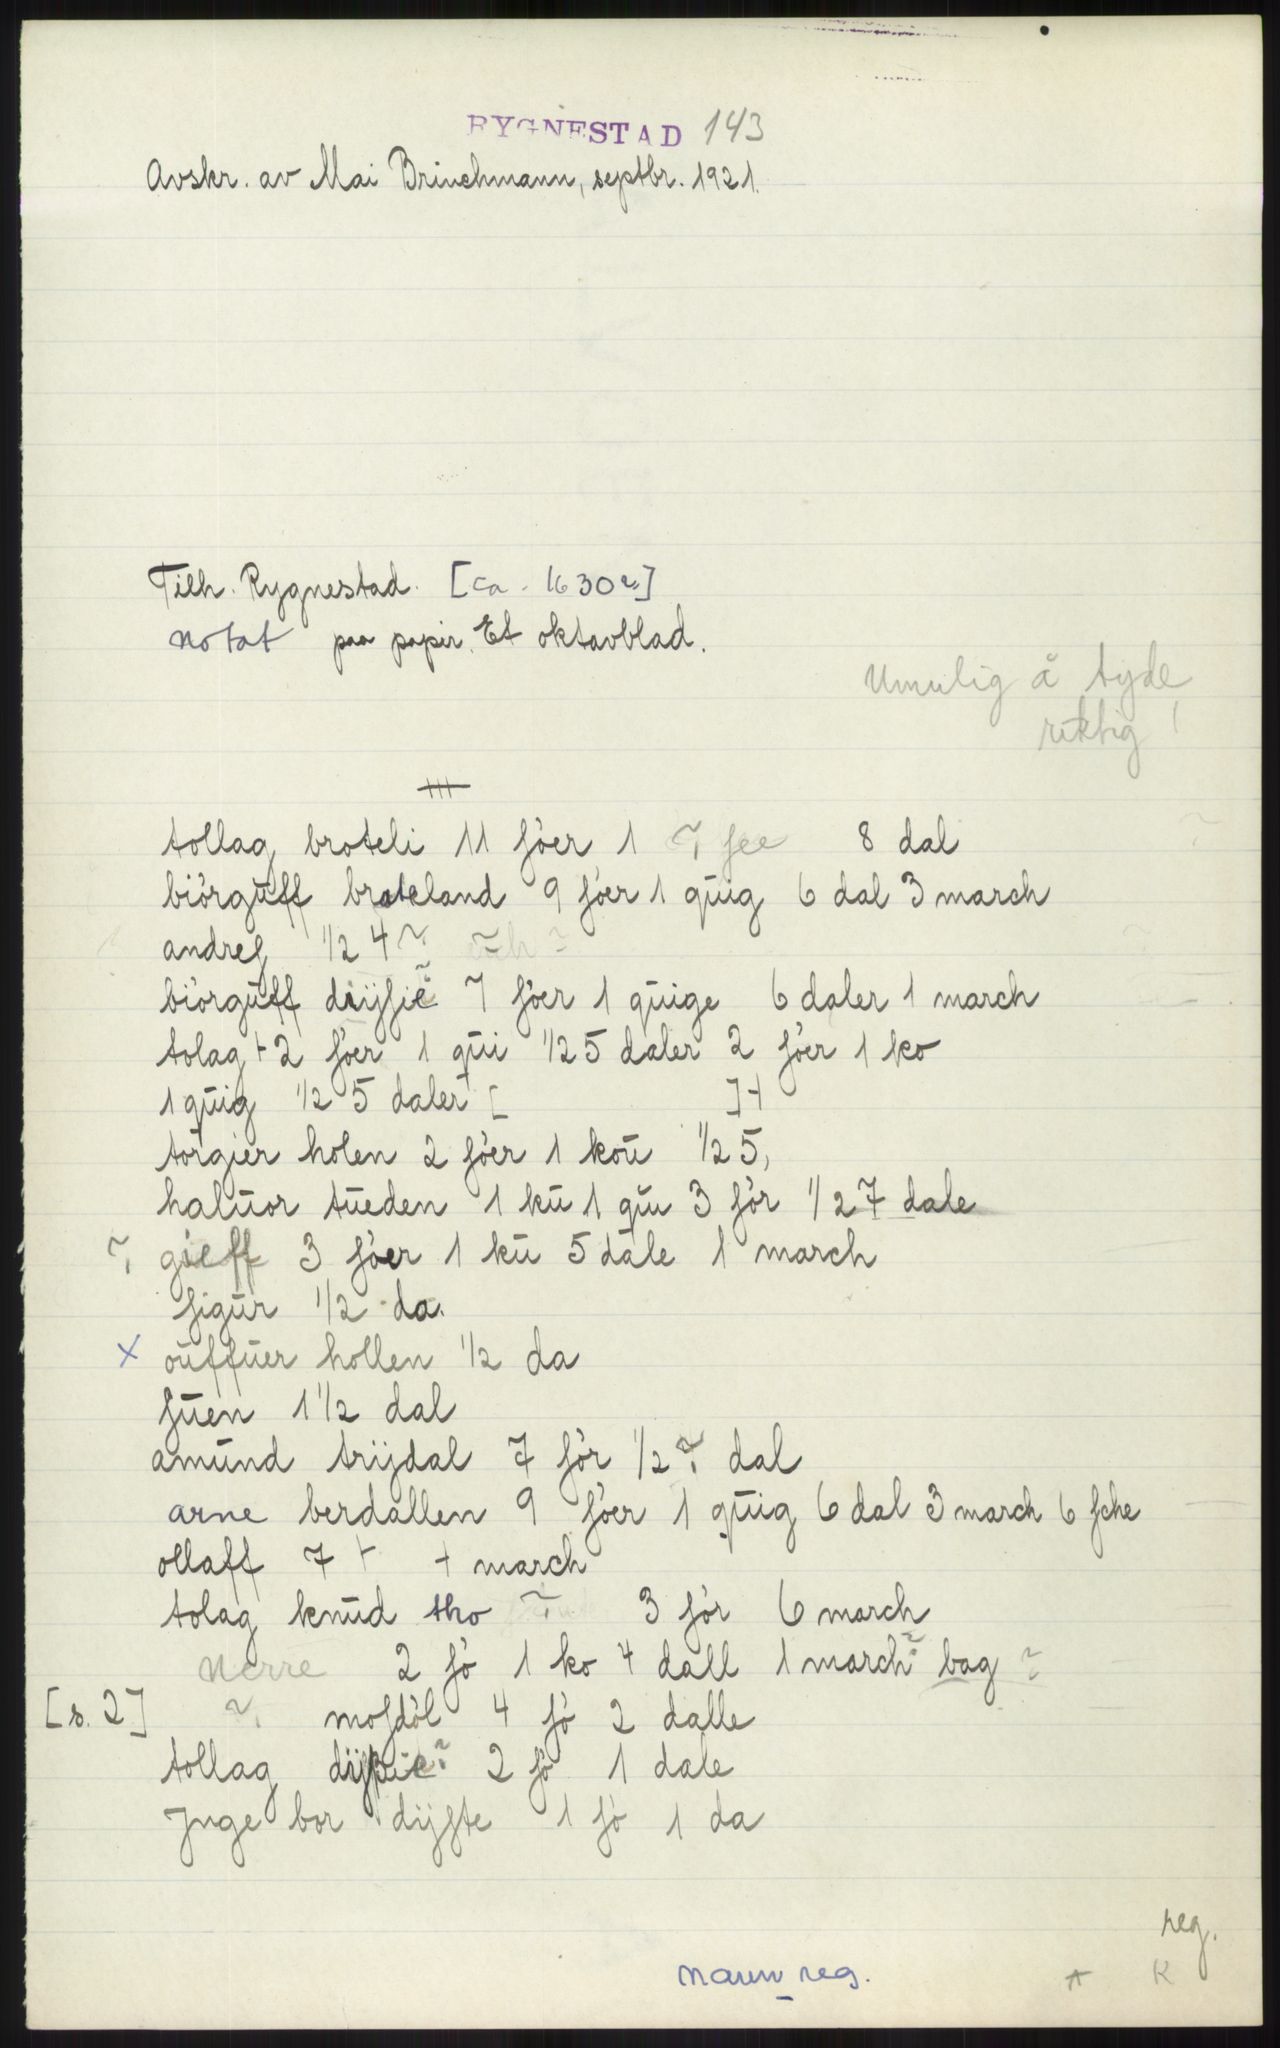 RYGNESTAD 143
Avskr. av Mai Brinchmann, septbr. 1921.
Tilh. Rygnestad. [ca. 1630?]
Notat paa papir. Et oktavblad.
Umulig å tyde
riktig!
tollag broteli 11 sòer 1 ? see 8 dal
biòrguff brateland 9 sòer 1 quig 6 dal 3 march
andres 1/2 4 ?
biòrguff 7 sòer 1 quige 6 daler 1 march
tolag + 2 sòer 1 qui 1/2 5 daler 2 sòer 1 ko
1 quig 1/2 5 daler [ ] +
torgier holen 2 sòer 1 kou 1/2 5,
haluor tueden 1 ku 1 qu 3 sòr 1/2 7 dale
? gieff 3 sòer 1 ku 5 dale 1 march
sigur 1/2 da.
x ouffuer hollen 1/2 da
suen 1 1/2 dal
amund trijdal 7 sòr 1/2 ? dal
arne berdallen 9 sòer 1 quig 6 dal 3 march 6 sche
ollaff 7 + + march
tolag knud tho ? 3 sòr 6 march
Nerre 2 sò 1 ko 4 dall 1 march ? bag ?
[s. 2] ? mosdòl 4 sò 2 dalle
tollag 2 sò 1 dale
Jnge bor dijste 1 sò 1 da
reg.
navn reg.
K